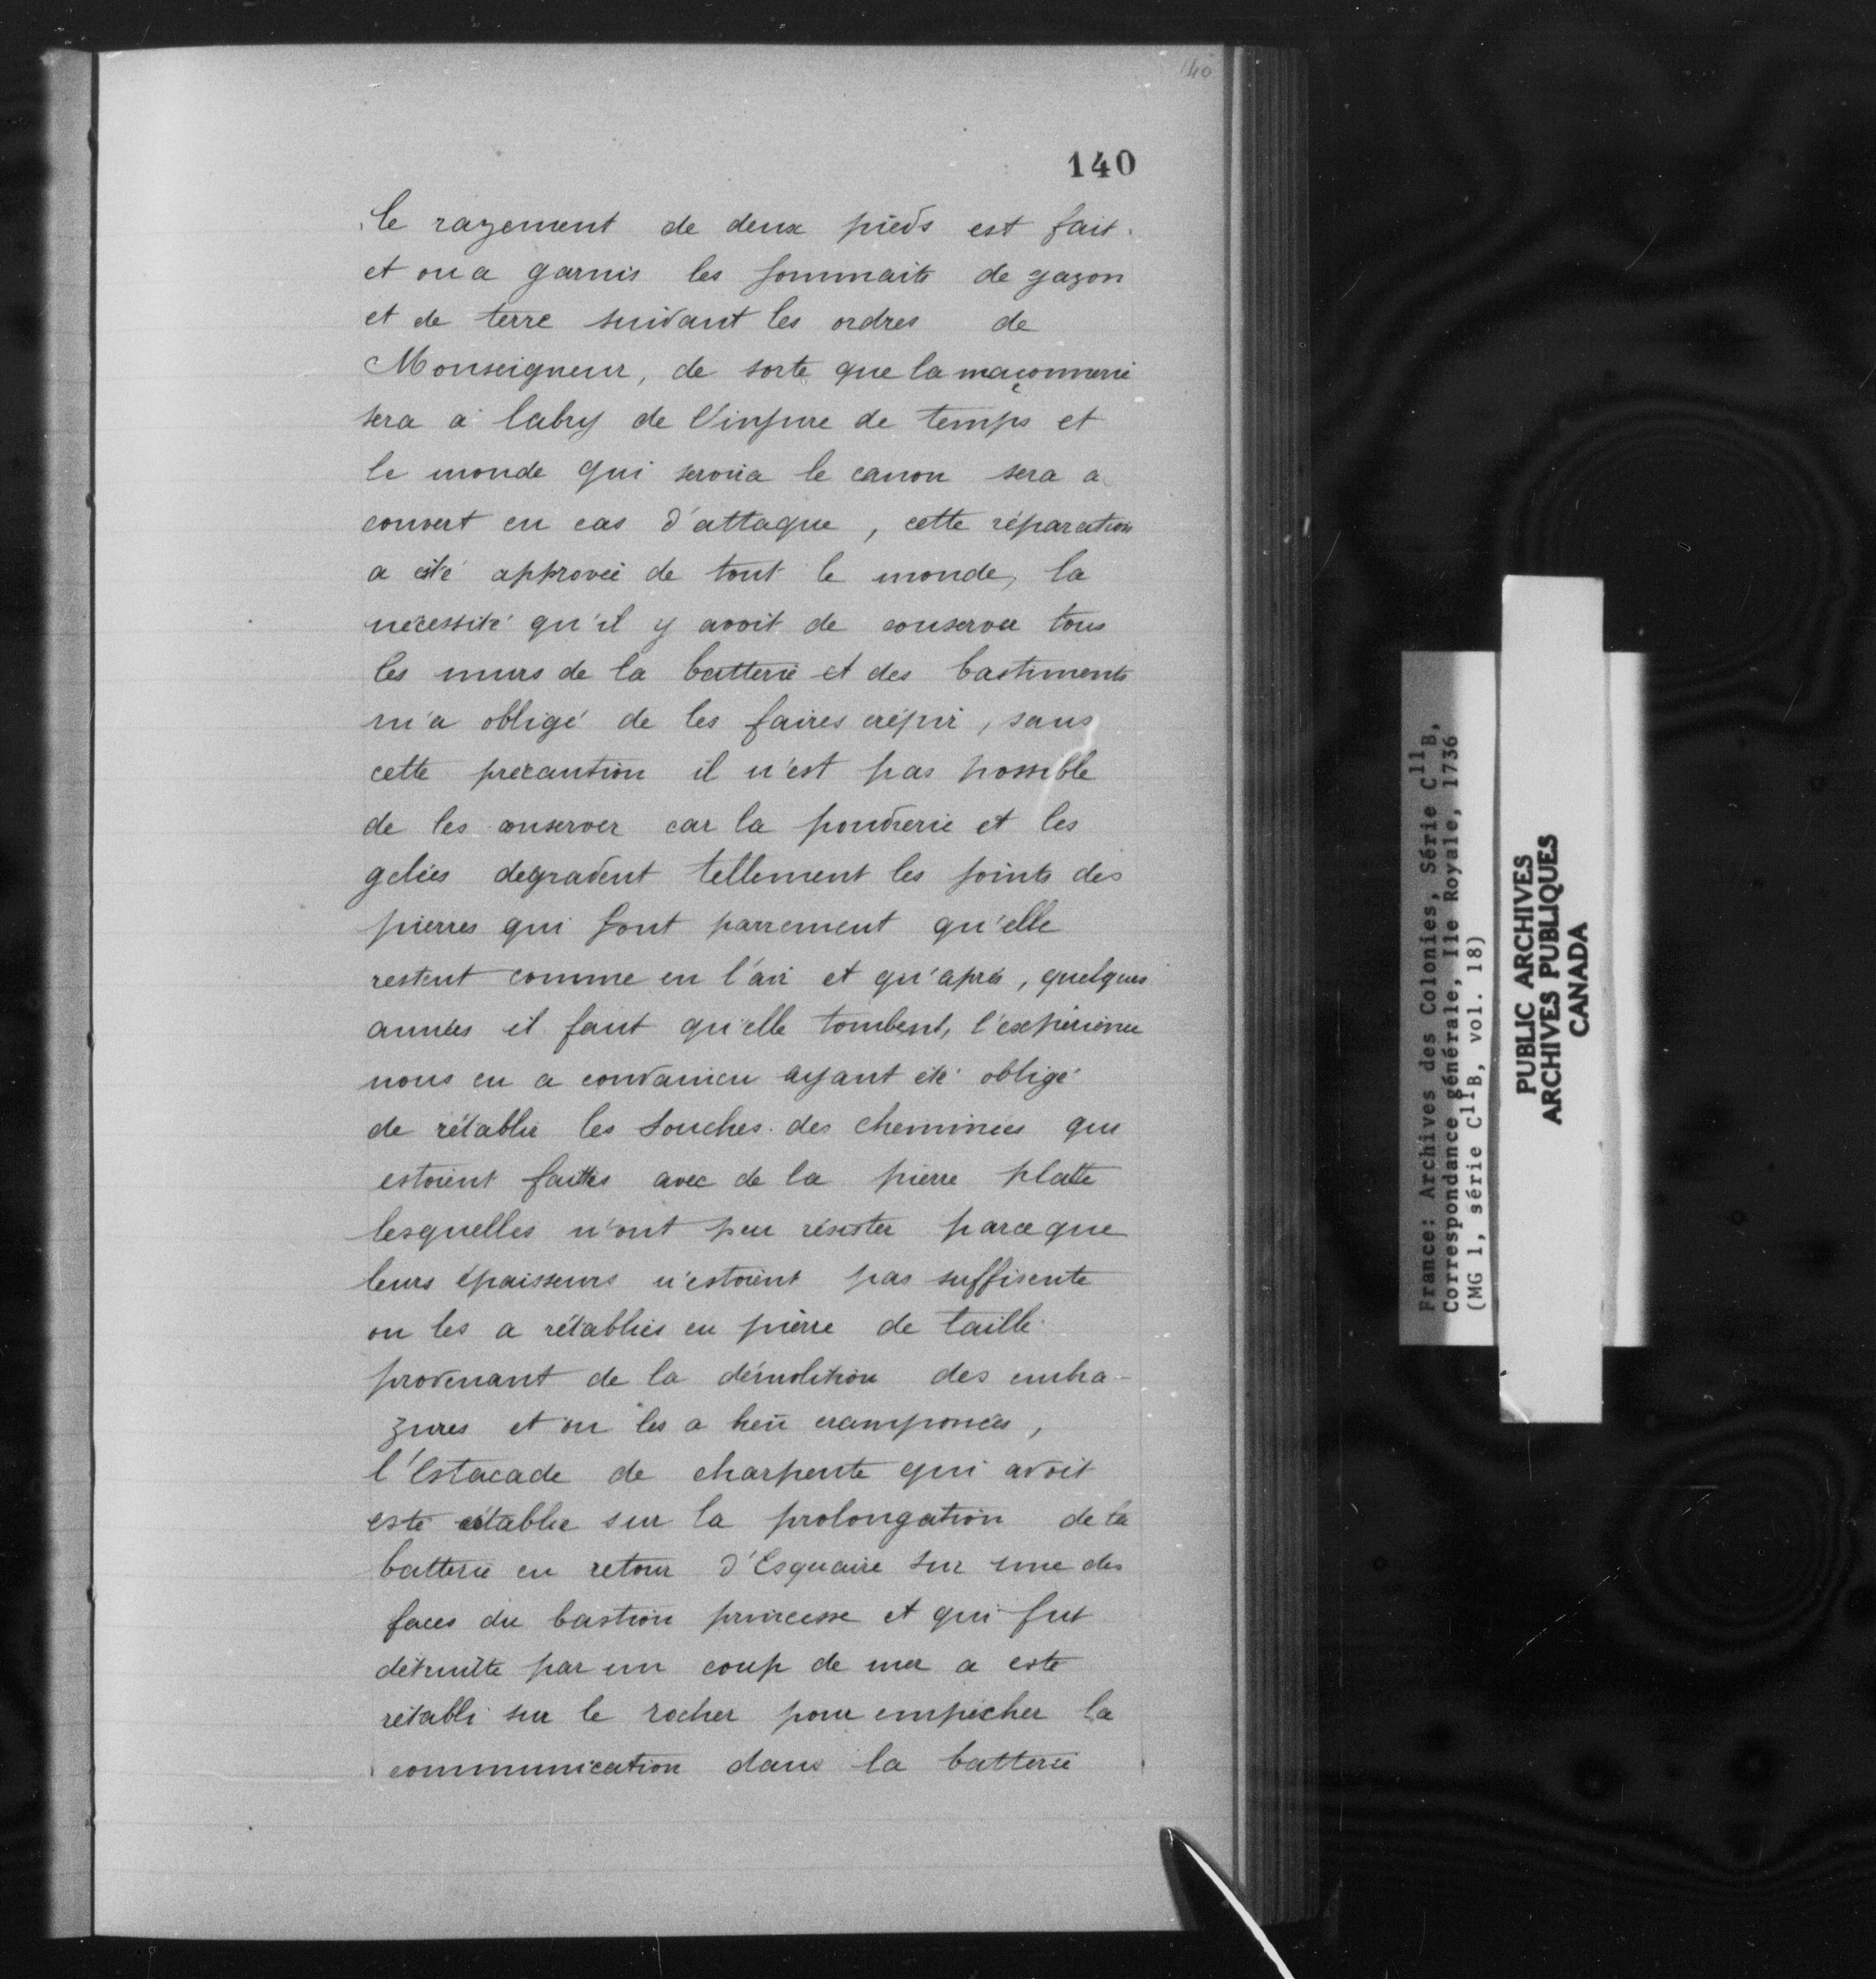 140
140
le razement de deux pieds est fait.
et on a garnis les sommaits de gazon
et de terre suivant les ordres de
Monseigneur, de sorte que la maçonnerie
sera a labry de l'injure de temps et
le monde qui servira le canon sera a
couvert en cas d'attaque, cette réparation
a esté approvée de tout le monde, la
nécessité qu'il y avoit de conserver tous
les murs de la batterie et des bastiments
m'a obligé de les faires crépir, sans
cette precaution il n'est pas possible
de les conserver car la poudrerie et les
gelées degradent tellement les joints des
pierres qui font parrement qu'elle
restent comme en l'air et qu'après, quelques
années il faut qu'elle tombent, l'expérience
nous en a convaincu ayant été obligé
de rétablir les souches des cheminées qui
estoient faittes avec de la pierre platte
lesquelles n'ont peu résister parceque
leurs épaisseurs n'estoient pas suffisente
on les a rétablies en pierre de taille
provenant de la démolition des embra-
zures et on les a bien cramponées,
l'Estacade de charpente qui avoit
esté établie sur la prolongation de la
batterie en retour d'Esquaire sur une des
faces du bastion princesse et qui fut
détruitte par un coup de mer a esté
rétabli sur le rocher pour empêcher la
communication dans la batterie
France: Archives des Colonies, Série C11B,
Correspondance générale, Ile Royale, 1736
(MG 1, série C11B, vol. 18)
PUBLIC ARCHIVES
ARCHIVES PUBLIQUES
CANADA